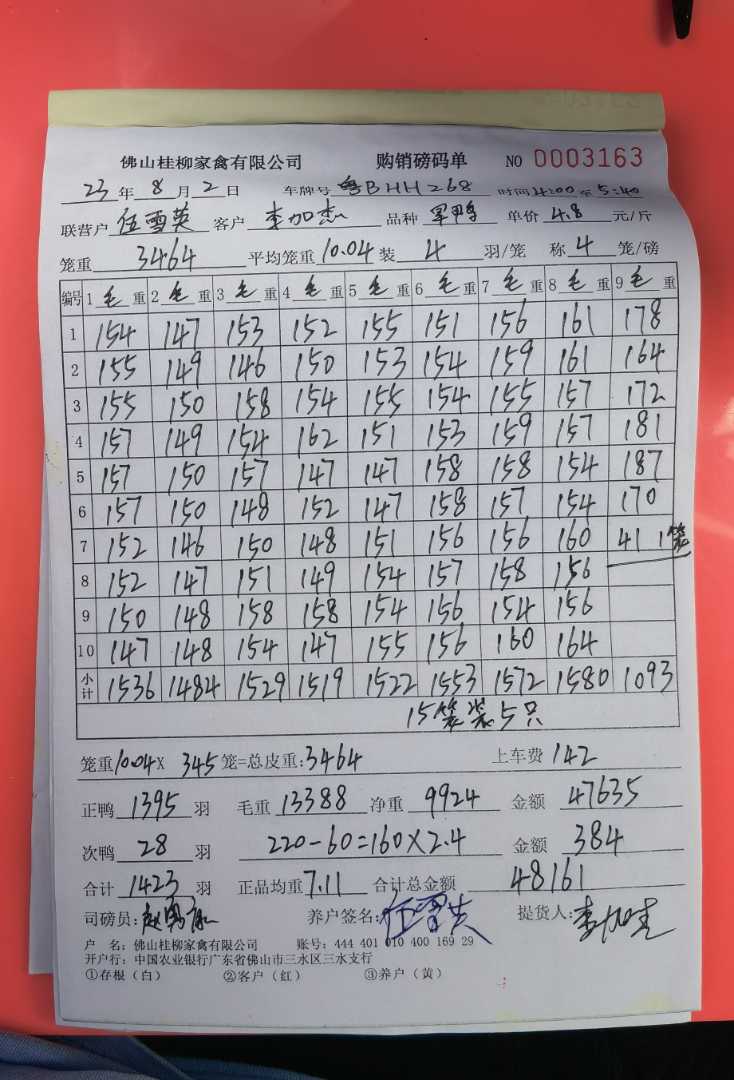 佛山桂柳家禽有限公司 购销磅码单 NO 0003163
23年8月2日 车牌号 粤BHH268 时间4:00至5:40
联营户 伍雪英 客户 李加杰 品种 单价 4.8 元/斤
笼重 3464 平均笼重 10.04 装 4 羽/笼 称 4 笼/磅
编号 1毛重 2毛重 3毛重 4毛重 5毛重 6毛重 7毛重 8毛重 9毛重
1 154 147 153 152 155 151 156 161 178
2 155 149 146 150 153 154 159 161 164
3 155 150 158 154 155 154 155 157 172
4 157 149 154 162 151 153 159 157 181
5 157 150 157 147 147 158 158 154 187
6 157 150 148 152 147 158 157 154 170
7 152 146 150 148 151 156 156 160 41 1笼
8 152 147 151 149 154 157 158 156
9 150 148 158 158 154 156 154 156
10 147 148 154 147 155 156 160 164
小计 1536 1484 1529 1519 1522 1553 1572 1580 1093
15笼装5只
笼重10.04× 345笼=总皮重:3464 上车费 142
正鸭 1395 羽 毛重 13388 净重 9924 金额 47635
次鸭 28 羽 220-60=160×2.4 金额 384
合计 1423 羽 正品均重 7.11 合计总金额 48161
司磅员: 养户签名: 伍雪英 提货人:
户 名:佛山桂柳家禽有限公司 账号:444 401 010 400 169 29
开户行:中国农业银行广东省佛山市三水区三水支行
①存根(白) ②客户(红) ③养户(黄)